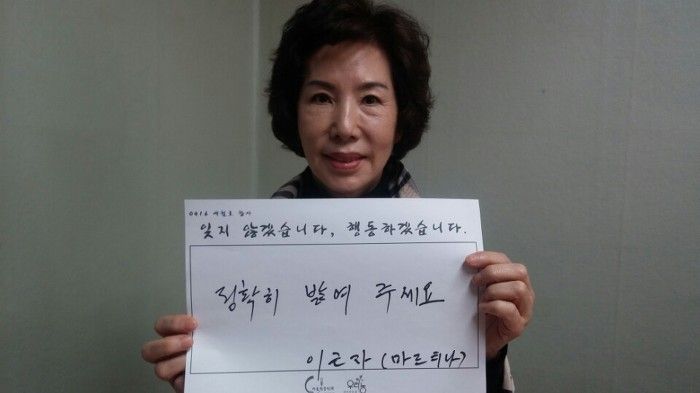 0416 세월호 참사
잊지 않겠습니다, 행동하겠습니다.
정확히 밝혀 주세요
이근자 (마르티나)